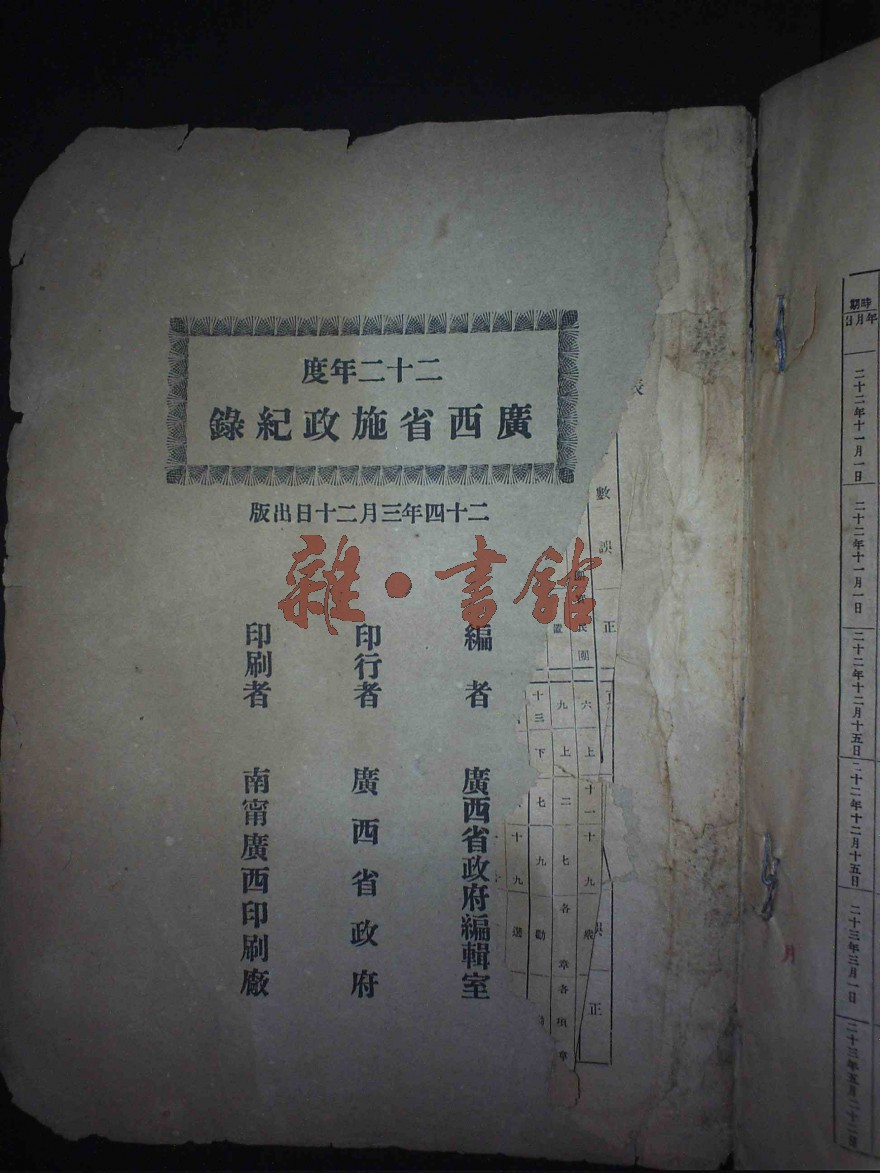 二十二年度
廣西省施政紀錄
二十四年三月二十日出版
雜·書館
編者 廣西省政府編輯室
印行者 廣西省政府
印刷者 南甯廣西印刷廠
表
數 誤 正
正
六 上 十一 十九
九 上 二 七 各章各項章
十三 下 七 九 勸
十九 選
時期
年月日
二十二年十一月一日
二十二年十一月一日
二十二年十二月十五日
二十二年十二月十五日
二十三年三月一日
二十三年五月二十二日
月